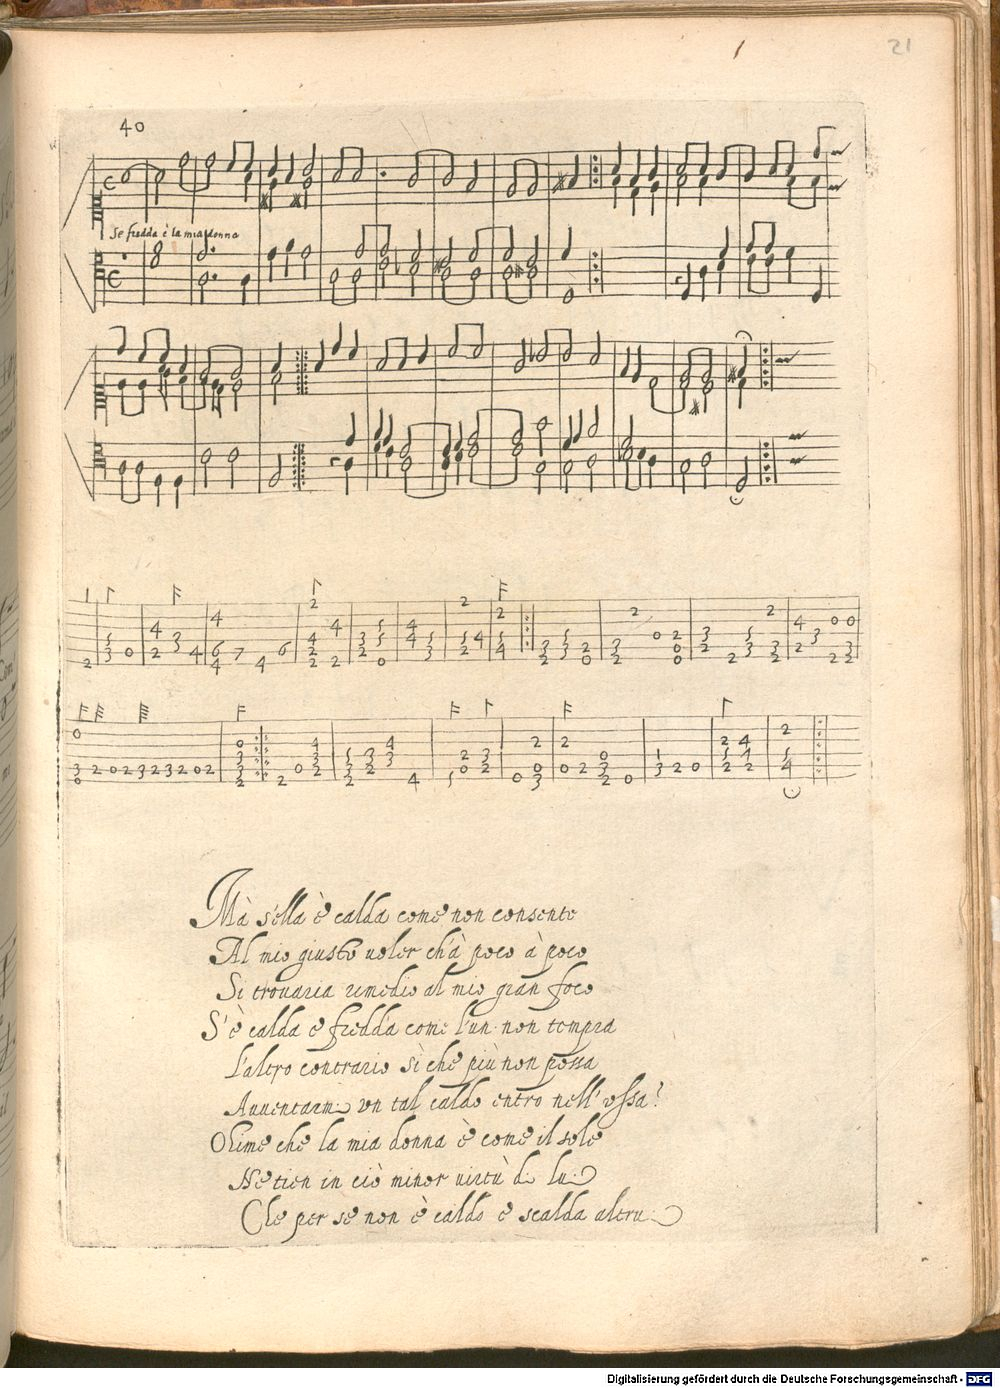 21
40
Se fredda è la mia donna
Mà s'ella è calda come non consente
Al mio giusto uoler ch'à poco à poco
Si trouaria remedio al mio gran foco
S'è calda e fredda come l'un non tempra
L'altro contrario sì che più non possa
Auuentarmi vn tal caldo entro nell'ossa?
Ohime che la mia donna è come il sole
Ne tien in ciò minor uirtù di lui
Che per se non è caldo e scalda altrui
Digitalisierung gefördert durch die Deutsche Forschungsgemeinschaft - DFG